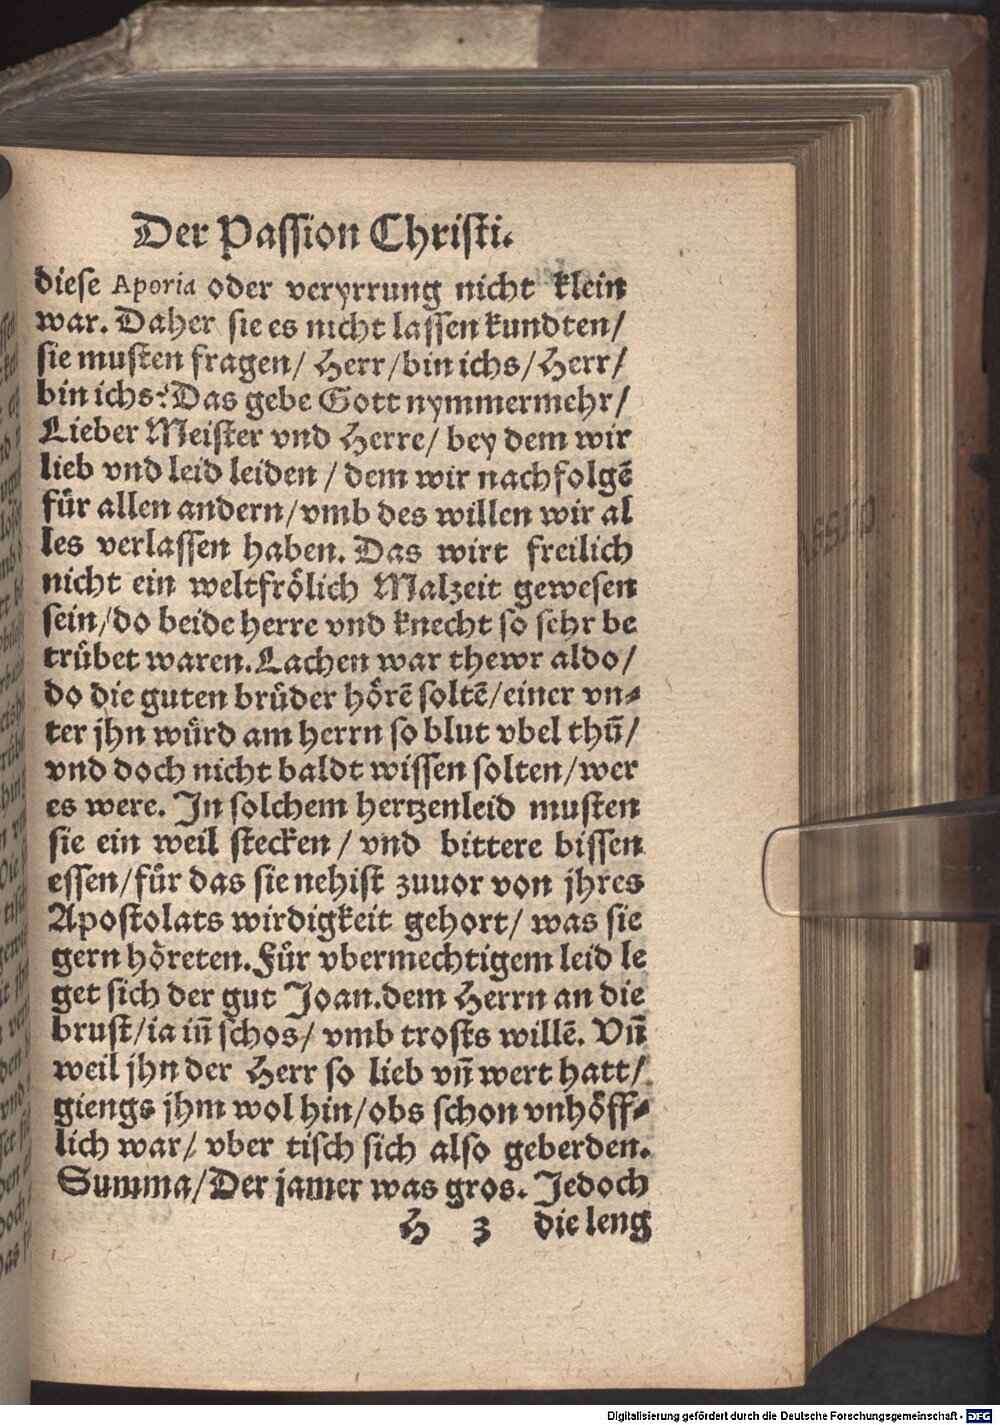 Der Passion Christi.
diese Aporia oder veryrrung nicht klein
war. Daher sie es nicht lassen kundten/
sie musten fragen/ Herr/bin ichs/Herr/
bin ichs? Das gebe Gott nymmermehr/
Lieber Meister vnd Herre/ bey dem wir
lieb vnd leid leiden / dem wir nachfolgẽ
fuͤr allen andern/vmb des willen wir al
les verlassen haben. Das wirt freilich
nicht ein weltfroͤlich Malzeit gewesen
sein/do beide herre vnd knecht so sehr be
truͤbet waren. Lachen war thewr aldo/
do die guten bruͤder hoͤrẽ soltẽ/einer vn⸗
ter jhn wuͤrd am herrn so blut vbel thuͦ̃/
vnd doch nicht baldt wissen solten/wer
es were. In solchem hertzenleid musten
sie ein weil stecken / vnd bittere bissen
essen/fuͤr das sie nehist zuuor von jhres
Apostolats wirdigkeit gehort/ was sie
gern hoͤreten. Fuͤr vbermechtigem leid le
get sich der gut Joan.dem Herrn an die
brust/ia iñ schos/ vmb trosts willẽ. Vñ
weil jhn der Herr so lieb vñ wert hatt/
giengs jhm wol hin/obs schon vnhoͤff⸗
lich war/ vber tisch sich also geberden.
Summa/Der jamer was gros. Jedoch
H 3 die leng
Digitalisierung gefördert durch die Deutsche Forschungsgemeinschaft - DFG